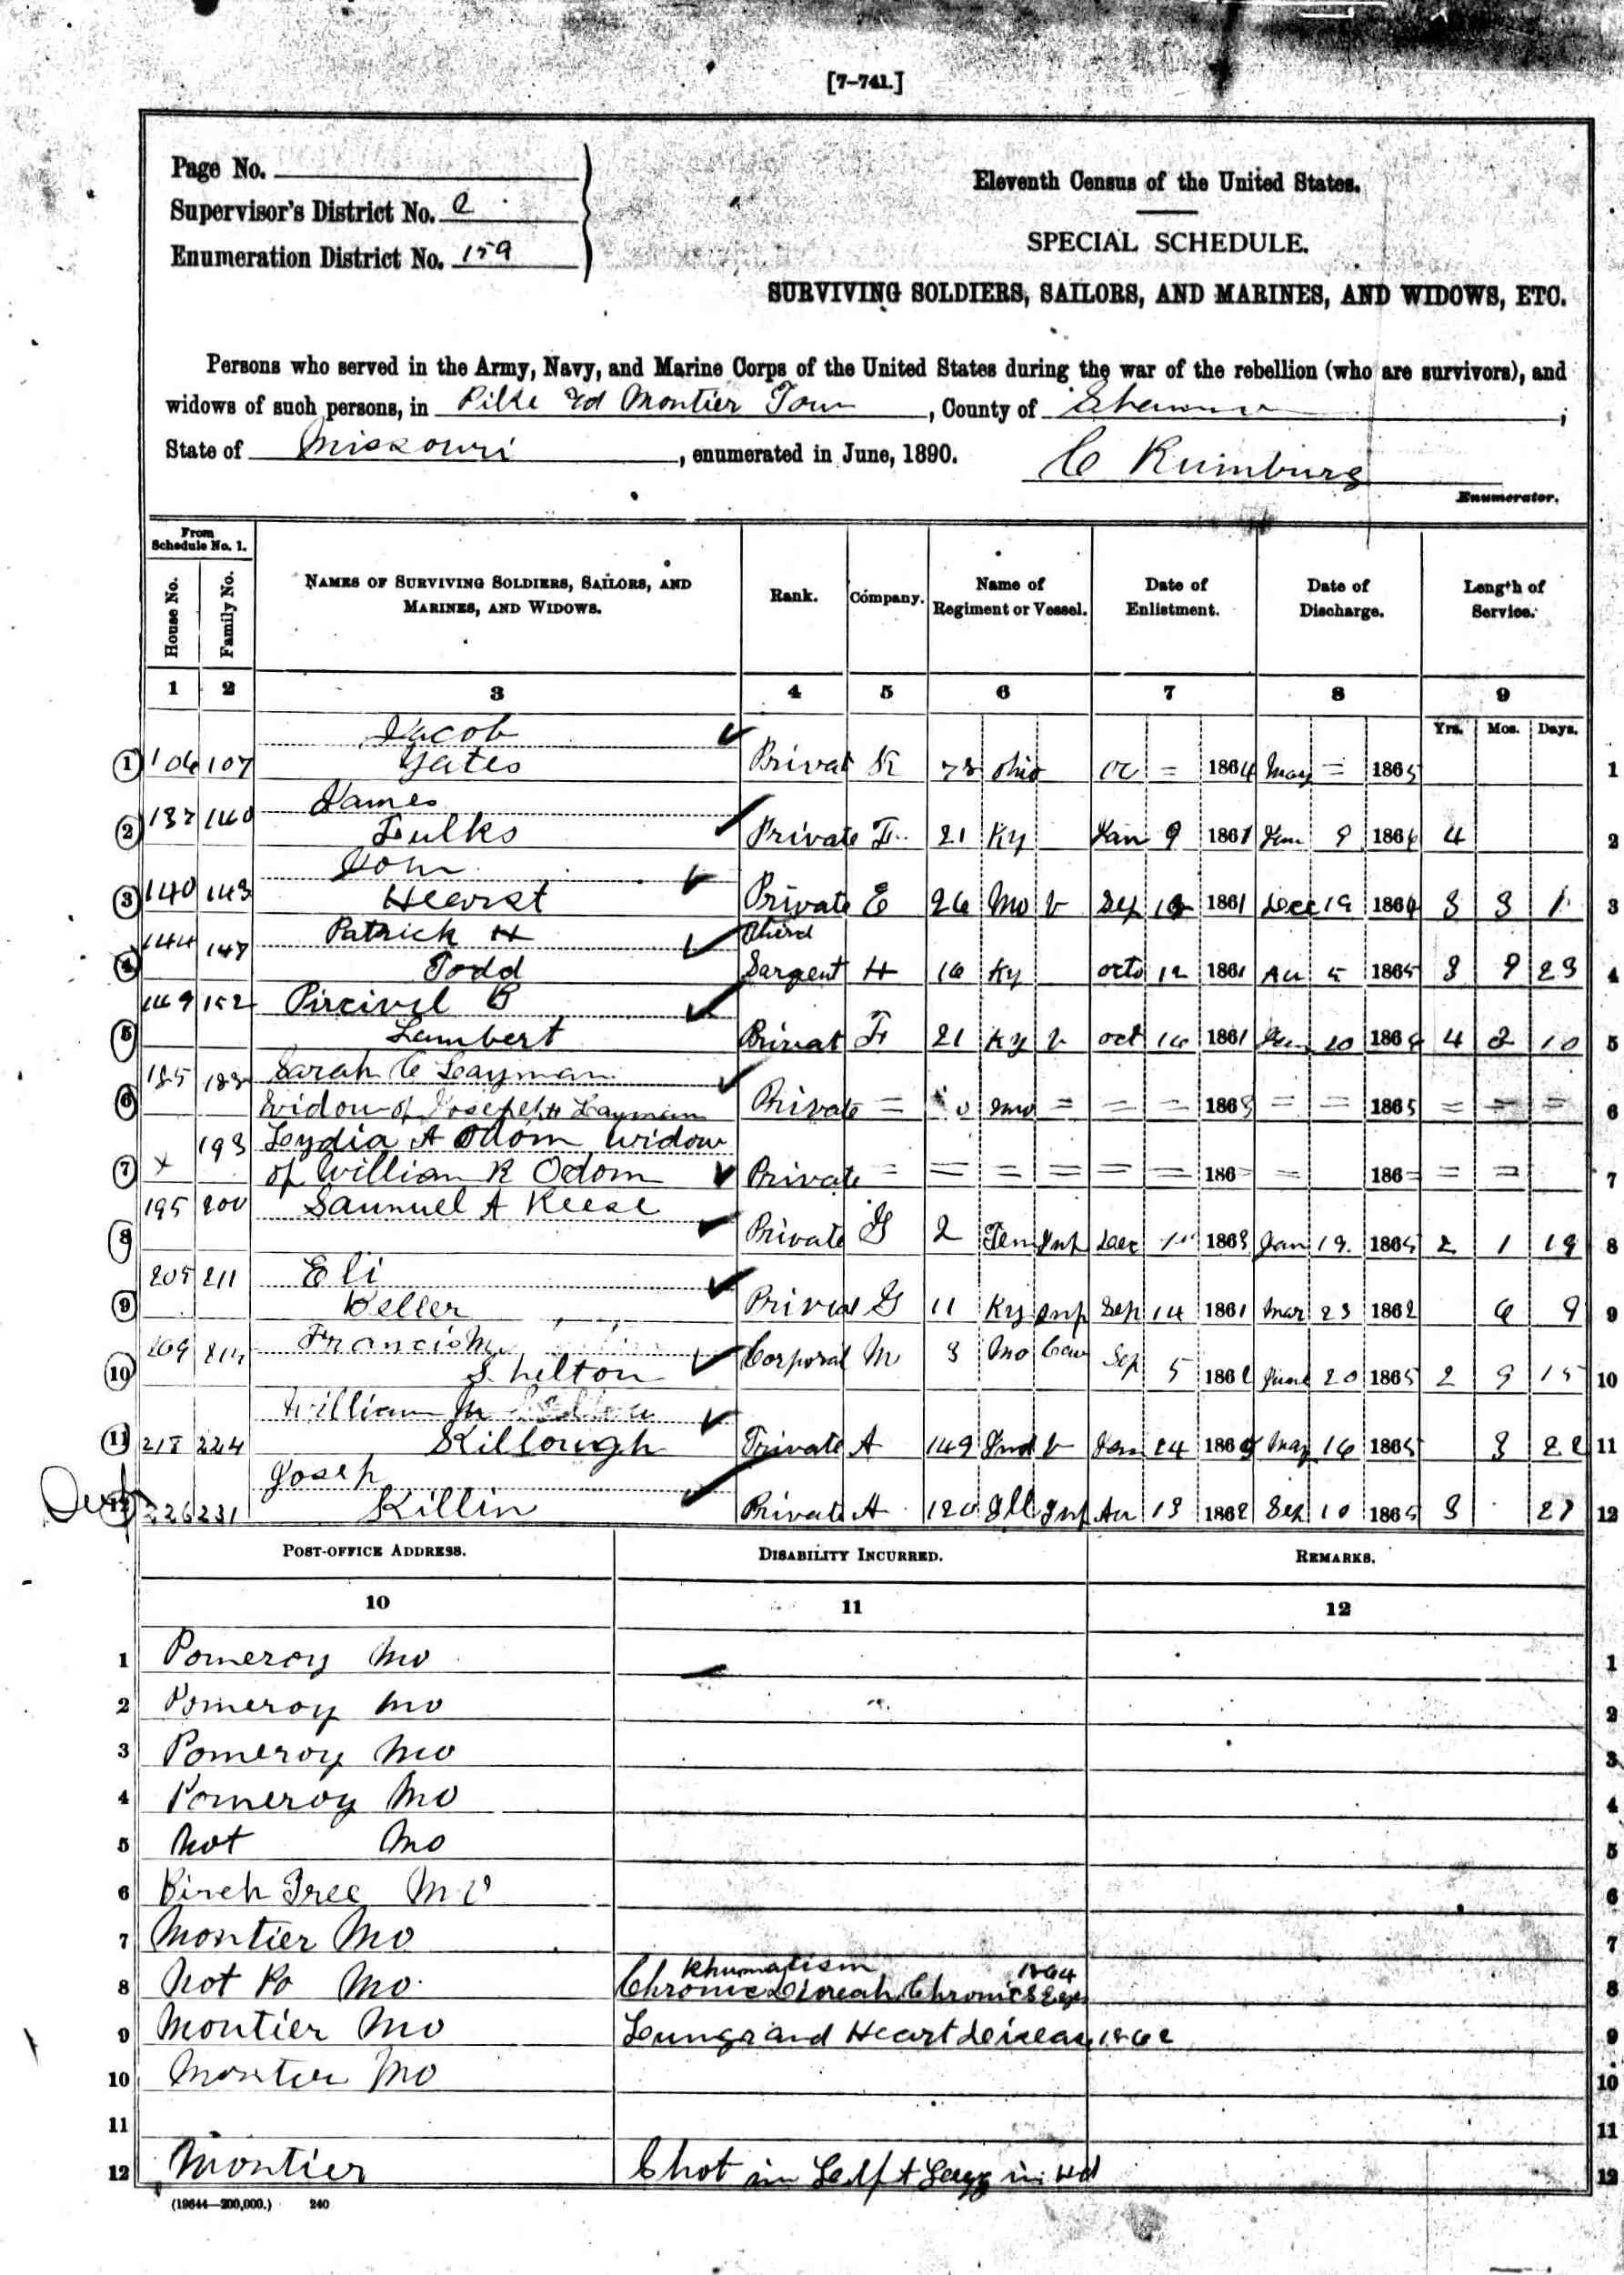 [7–741.]
Page No.
Supervisor's District No.
Enumeration District No. 159
Eleventh Census of the United States.
SPECIAL SCHEDULE.
SURVIVING SOLDIERS, SAILORS, AND MARINES, AND WIDOWS, ETC.
Persons who served in the Army, Navy, and Marine Corps of the United States during the war of the rebellion (who are survivors), and
widows of such persons, in Montier Town, County of ;
State of Missouri, enumerated in June, 1890.
Enumerator.
From Schedule No. 1.
House No. Family No. NAMES OF SURVIVING SOLDIERS, SAILORS, AND MARINES, AND WIDOWS. Rank. Company. Name of Regiment or Vessel. Date of Enlistment. Date of Discharge. Length of Service.
1 2 3 4 5 6 7 8 9
Yrs. Mos. Days.
Jacob
1 106 107 Yates Privat K Ohio = 1864 May = 1865 1
James
2 137 140 Fulks Private F 21 Ky Jan 9 1861 9 186 4 2
John
3 140 143 Hearst Private E 26 Mo V Sep 1861 Dec 19 1864 3 3 1 3
144 147 Patrick H Third
4 Todd Sargent H 16 Ky octo 12 1861 Au 5 1865 3 9 23 4
149 152 B
5 Lambert Privat F 21 Ky V oct 1861 10 186 4 2 10 5
185 188 Sarah C Layman
6 Widow of Joseph H Layman Private = Mo = = = 1863 = = 1865 = = = 6
193 Lydia A Odom widow
7 x of William R Odom Private = = = = = = 186= = 186= = = 7
195 200 Samuel A Reese
8 Private G 2 Tenn Inf Dec 1863 Jan 19 1865 2 1 19 8
205 211 Eli
9 Keller G 11 Ky Inf Sep 14 1861 Mar 23 1862 6 9 9
209 Francis M
10 Shelton Corporal M 3 Mo Cav Sep 5 1862 June 20 1865 2 9 15 10
William M
11 218 224 Killough Private A 149 Ind V Jan 24 186 May 16 1865 3 22 11
Josep
12 226 231 Killin Private A 120 Ill Inf Au 13 1862 Sep 10 1865 3 27 12
POST-OFFICE ADDRESS. DISABILITY INCURRED. REMARKS.
10 11 12
1 Pomeroy Mo 1
2 Pomeroy Mo 2
3 Pomeroy Mo 3
4 Pomeroy Mo 4
5 Not Mo 5
6 Birch Tree Mo 6
7 Montier Mo 7
Rhumatism 1864
8 Not Po Mo Chronic Chronic 8
9 Montier Mo Lungs and Heart 1862 9
10 Montier Mo 10
11 11
12 Montier Shot in in 12
(19644—200,000.) 240